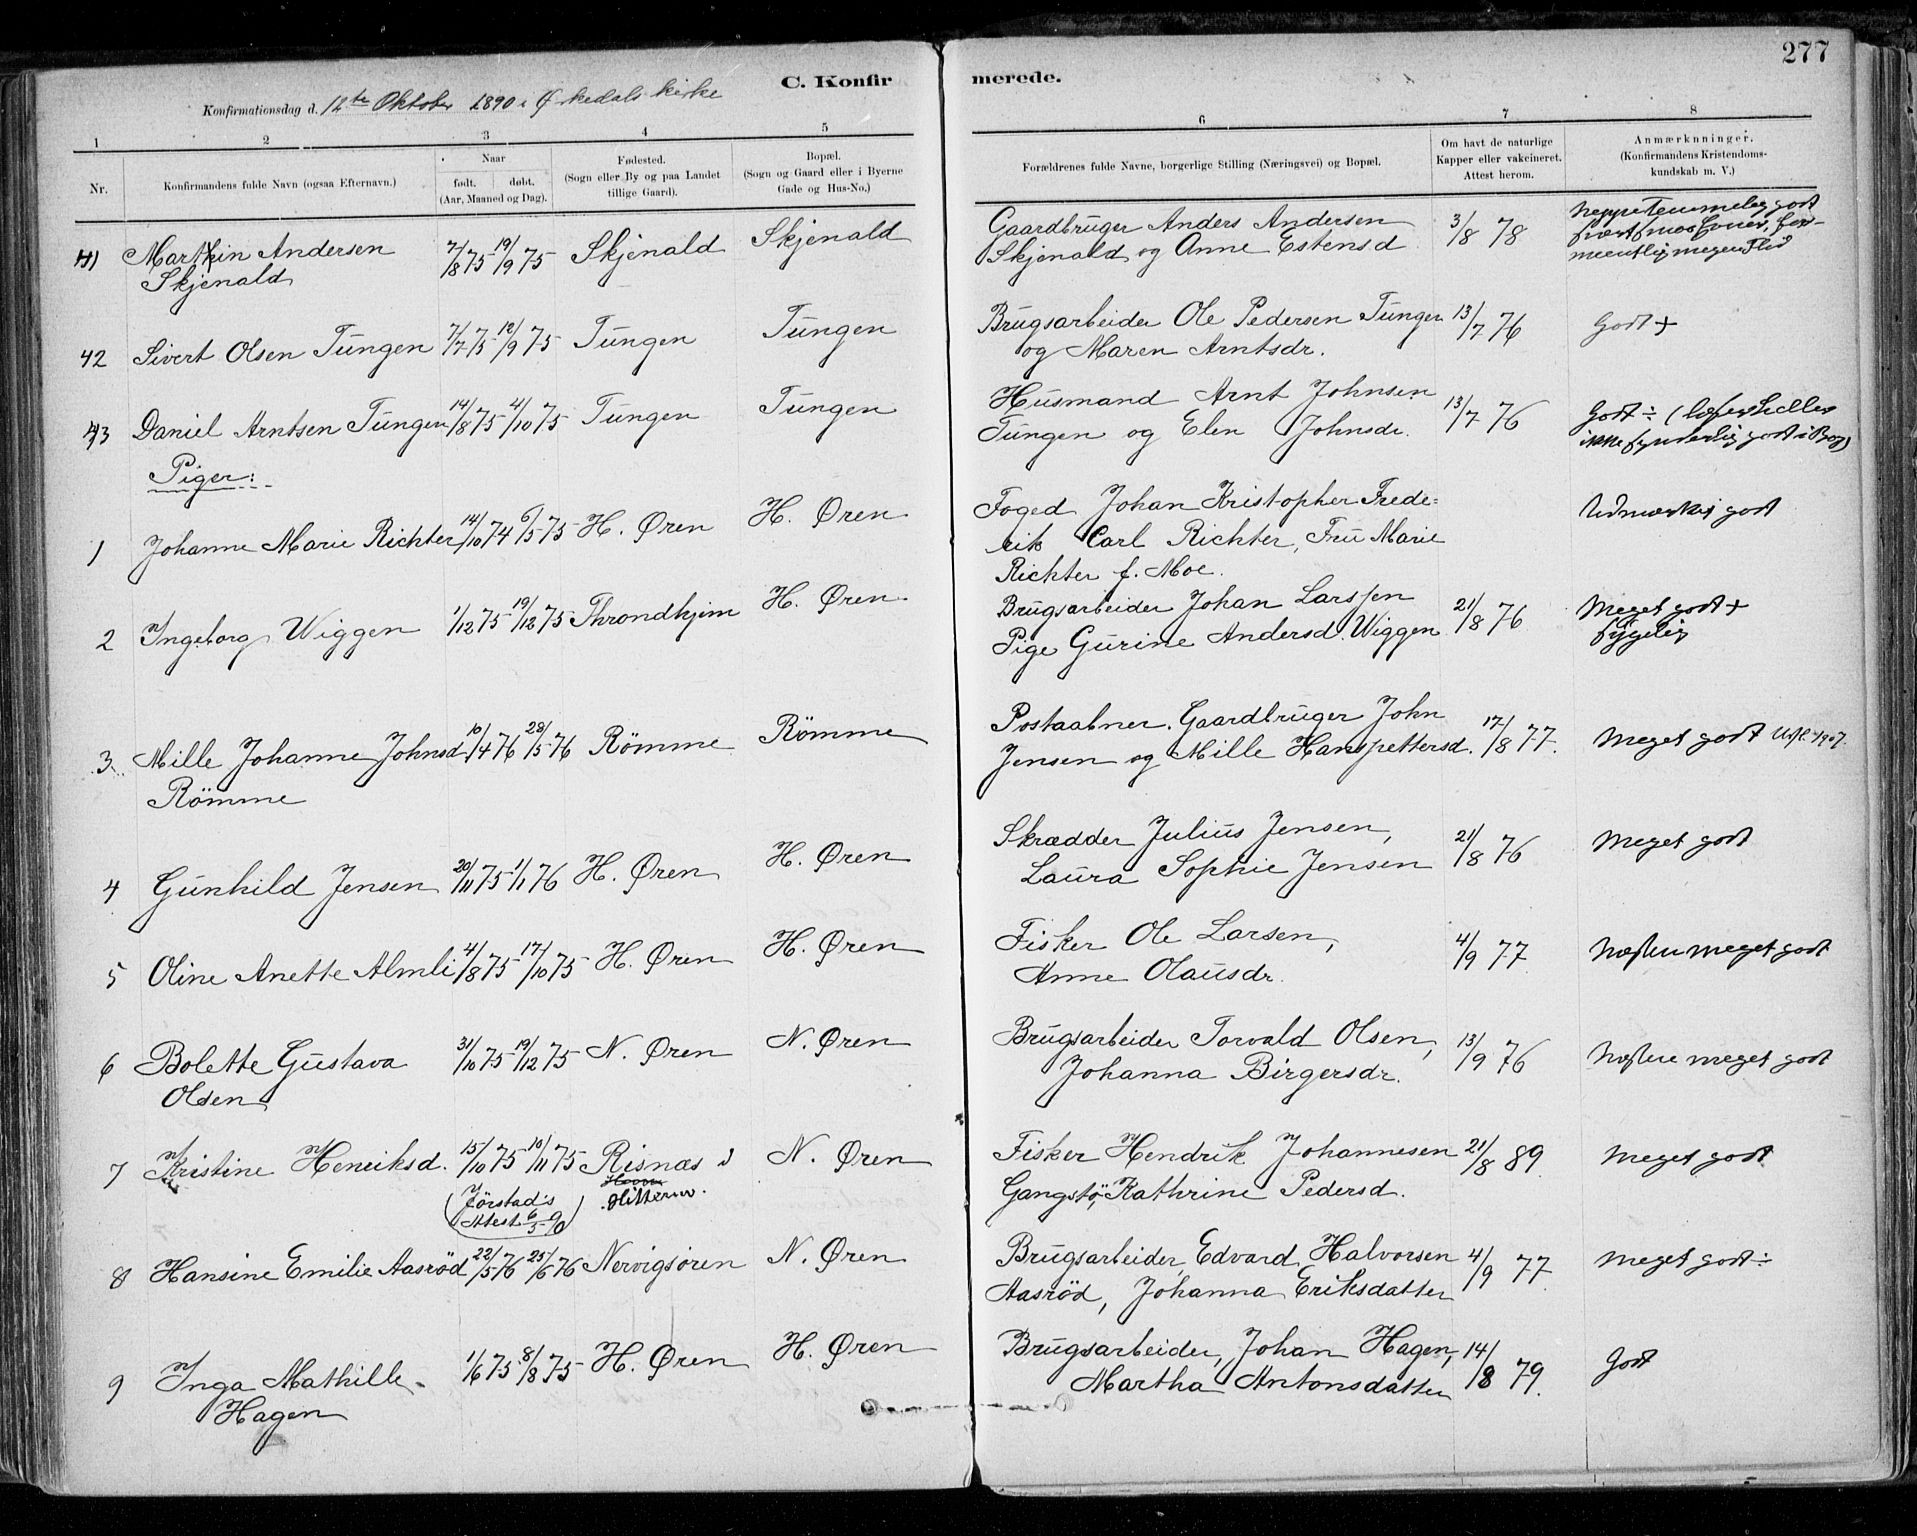 277
C. Konfirmerede.
Konfirmationsdag d. 12te Oktober 1890 i Ørkedals kirke
1 2 3 4 5 6 7 8
Nr.
Konfirmandens fulde Navn (ogsaa Efternavn.)
Naar
født. døbt.
(Aar, Maaned og Dag).
Fødested.
(Sogn eller By og paa Landet
tillige Gaard).
Bopæl.
(Sogn og Gaard eller i Byerne
Gade og Hus-No.)
Forældrenes fulde Navne, borgerlige Stilling (Næringsvei) og Bopæl.
Om havt de naturlige
Kapper eller vakcineret.
Attest herom.
Anmærkninger.
(Konfirmandens Kristendoms-
kundskab m. V.)
41 Martin Andersen 7/8 75 19/9 75 Skjenald Skjenald Gaardbruger Anders Andersen 3/8 78 neppe temmelig godt
Skjenald Skjenald og Anne Estensd megen Flid
42 Sivert Olsen Tungen 7/7 75 12/9 75 Tungen Tungen Brugsarbeider Ole Pedersen Tungen 13/7 76 Godt +
og Maren Arntsdr.
43 Daniel Arntsen Tungen 14/8 75 4/10 75 Tungen Tungen Husmand Arnt Johnsen 13/7 76 Godt ÷ (læser heller
Tungen og Elen Johnsdr. ikke synderlig godt i Bog)
Piger:
1 Johanne Marie Richter 14/10 74 6/5 75 H. Øren H. Øren Foged Johan Kristopher Frede= Udmærket godt
rik Carl Richter, Fru Marie
Richter f. Moe.
2 Ingeborg Wiggen 1/12 75 19/12 75 Throndhjem H. Øren Brugsarbeider Johan Larssen 21/8 76 Meget godt +
Pige Gurine Andersd. Wiggen sygelig
3 Mille Johanne Johnsd. 10/4 76 28/5 76 Römme Römme Postaabner. Gaardbruger John 17/8 77. Meget godt Utfl. 1907.
Römme Jensen og Mille Hanspettersd.
4 Gunhild Jensen 20/11 75 1/1 76 H. Øren H. Øren Skrædder Julius Jensen, 21/8 76 Meget godt
Laura Sophie Jensen
5 Oline Anette Almli 4/8 75 17/10 75 H. Øren H. Øren Fisker Ole Larsen, 4/9 77 Næsten meget godt
Anne Olausdr.
6 Bolette Gustava 31/10 75 19/12 75 N. Øren N. Øren Brugsarbeider Torvald Olsen, 13/9 76 Næsten meget godt
Olsen Johanna Birgersdr.
7 Kristine Henriksd. 15/10 75 10/11 75 Risnæs i N. Øren Fisker Hendrik Johannesen 21/8 89 Meget godt
(Jörstad's Hitteren. Gangstö, Kathrine Pedersd.
Attest 6/5 90)
8 Hansine Emilie Aasröd 22/5 76 25/6 76 Nervigsören N. Øren Brugsarbeider Edvard Halvorsen 4/9 77 Meget godt ÷
Aasröd, Johanna Eriksdatter
9 Inga Mathille 1/6 75 8/8 75 H. Øren H. Øren Brugsarbeider, Johan Hagen, 14/8 79. Godt
Hagen Martha Antonsdatter